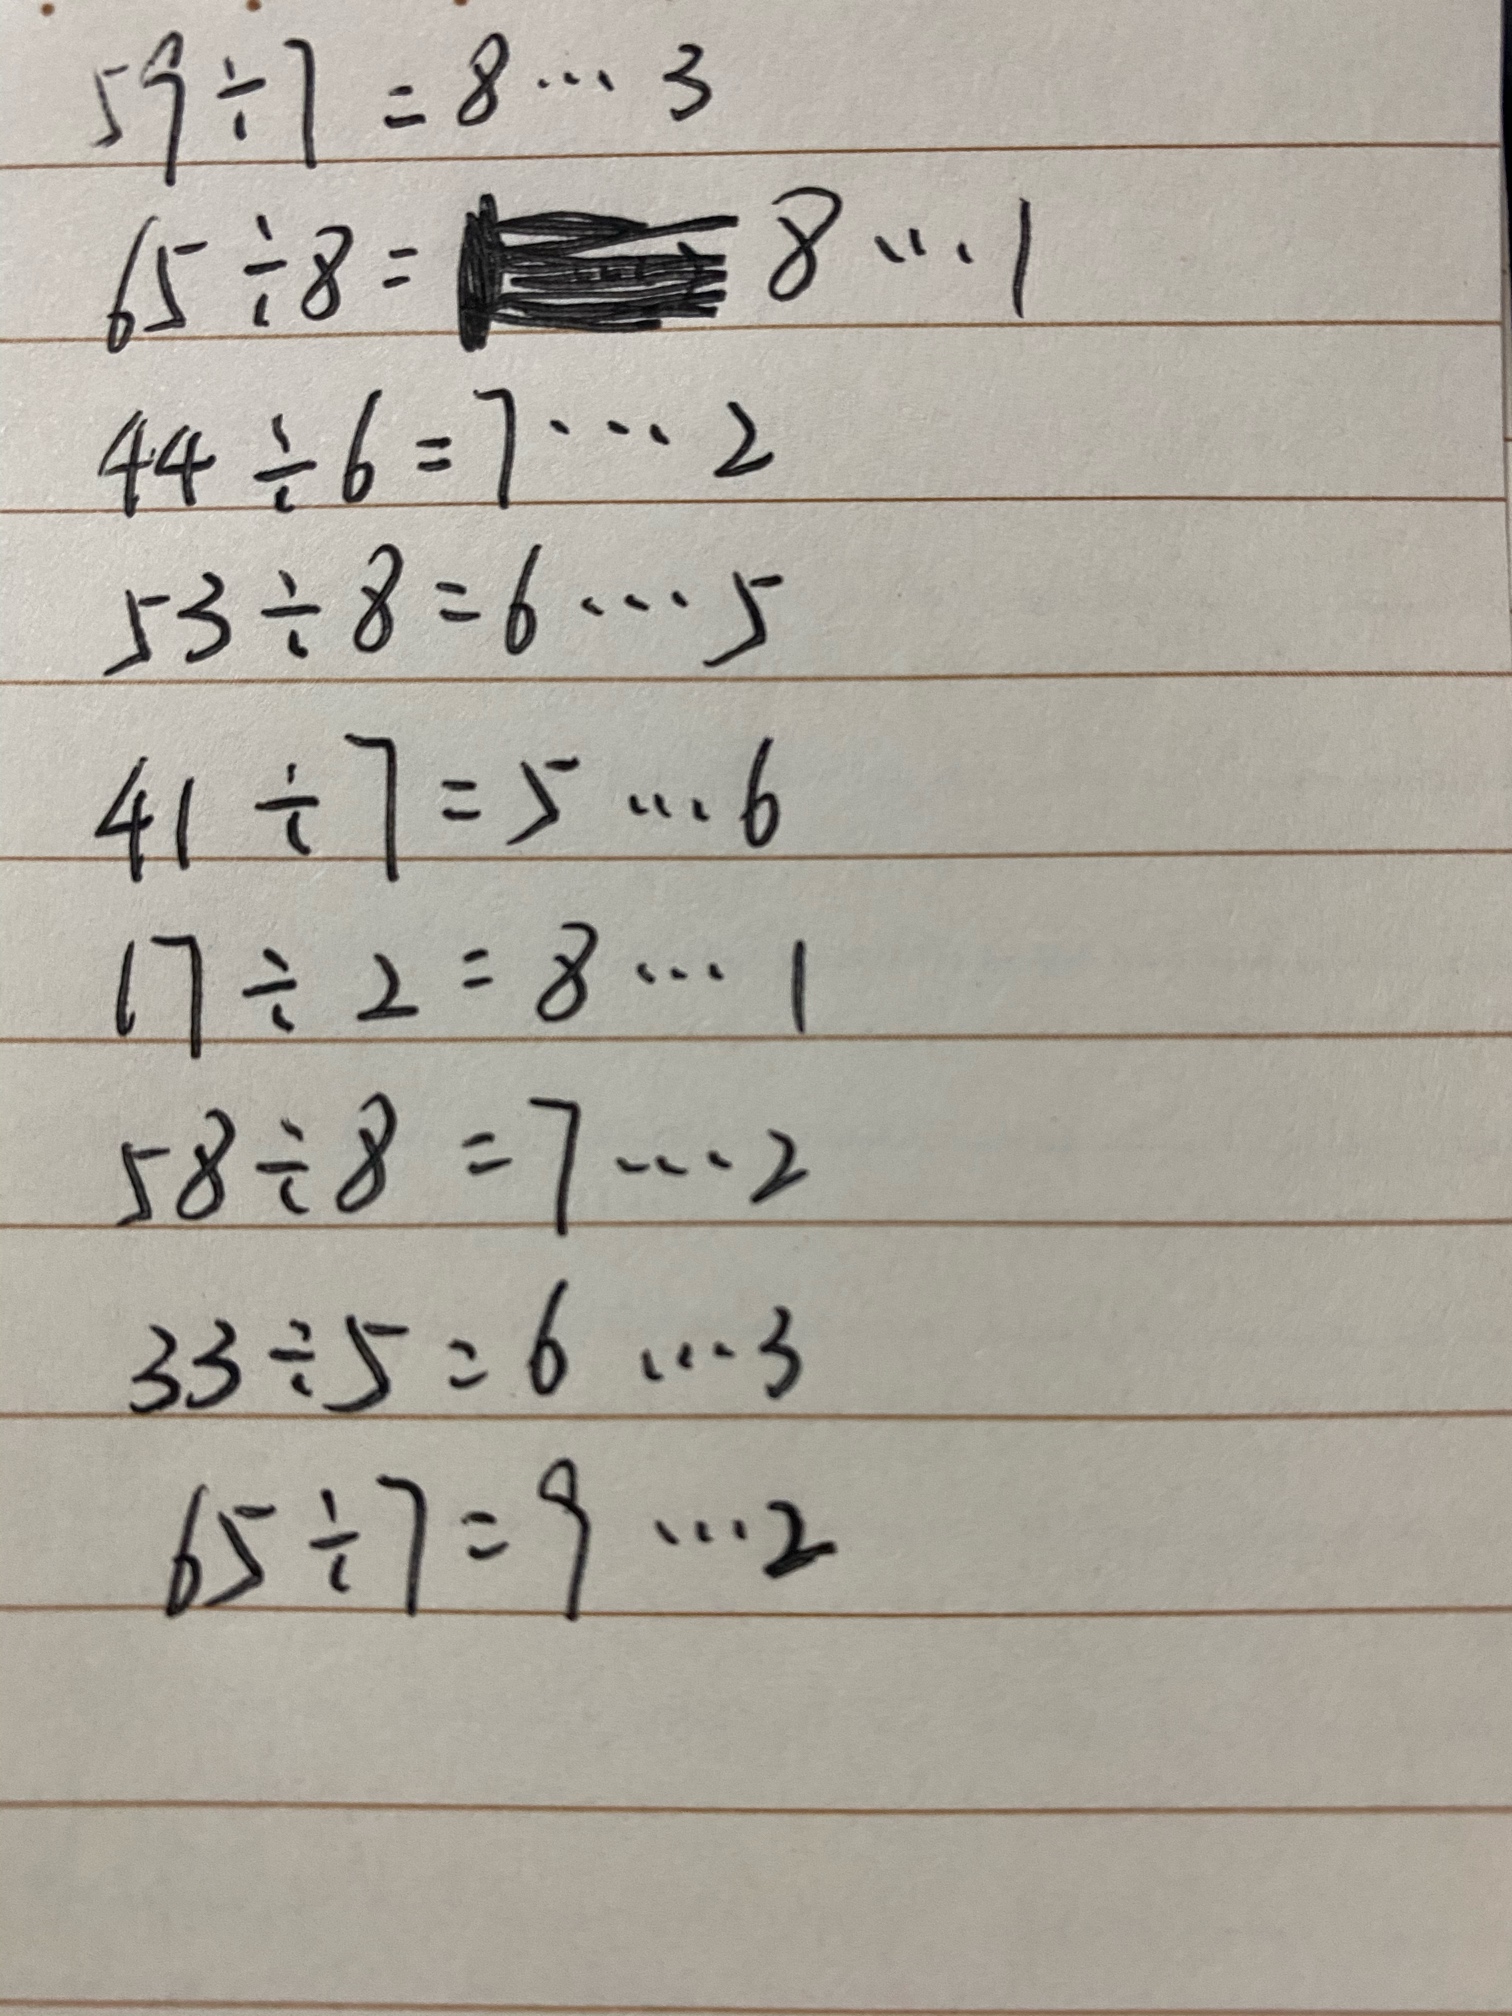 59÷7=8…3
65÷8=8…1
44÷6=7…2
53÷8=6…5
41÷7=5…6
17÷2=8…1
58÷8=7…2
33÷5=6…3
65÷7=9…2